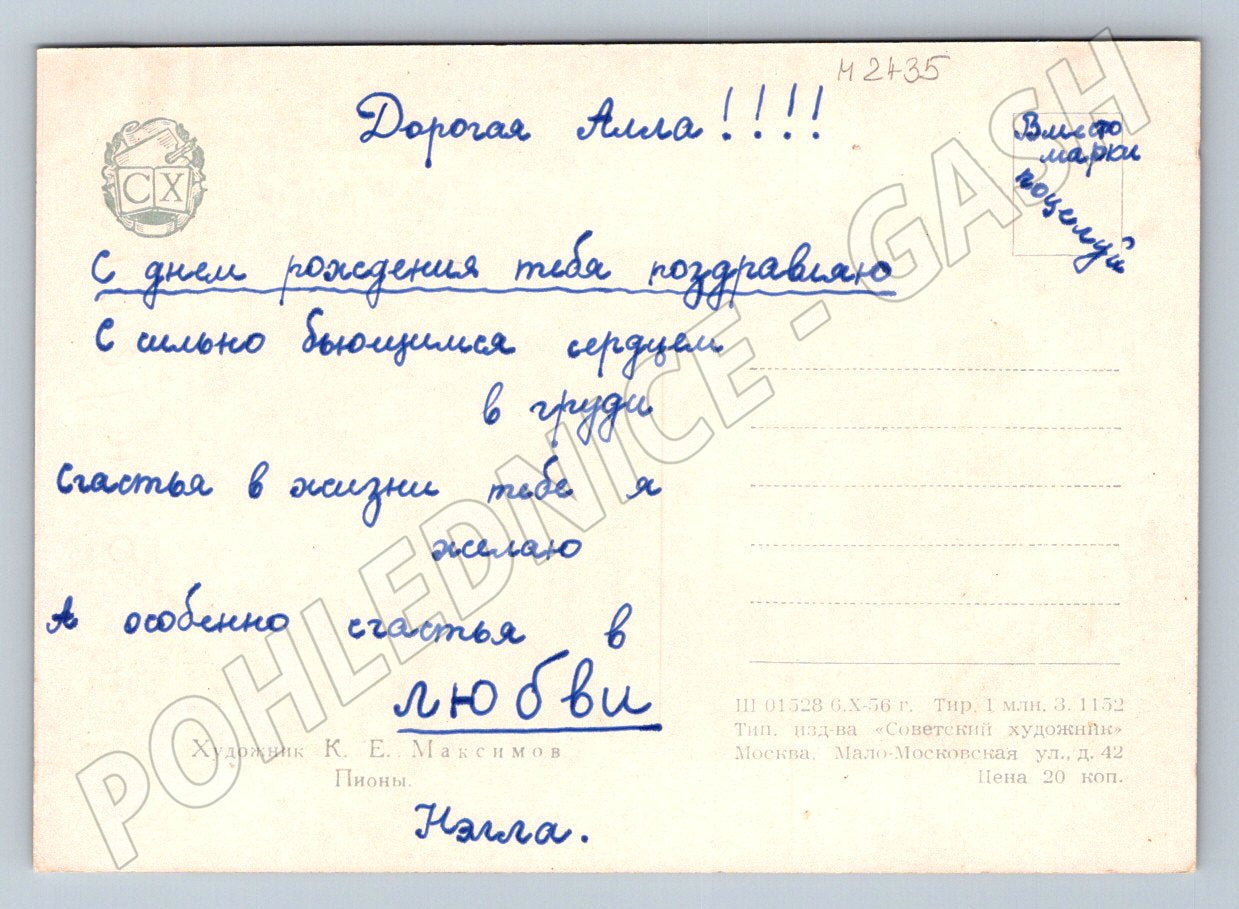 М 2435
Дорогая Алла!!!!
Вместо
марки
поцелуй
СХ
С днем рождения тебя поздравляю
С сильно бьющимся сердцем
в груди
Счастья в жизни тебе я
желаю
А особенно счастья в
любви
Художник К. Е. Максимов
Пионы.
Нэлла.
Ш 01528 6.X-56 г. Тир. 1 млн. З. 1152
Тип. изд-ва «Советский художник»
Москва, Мало-Московская ул., д. 42
Цена 20 коп.
POHLEDNICE - GASH